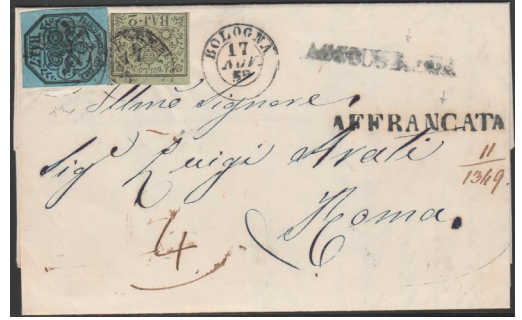 BAJ. 7
BAJ. 2
BOLOGNA
17
59
AFFRANCATA
Illmo Signore
Sig.e Luigi Arati
Roma.
11
1349.
4